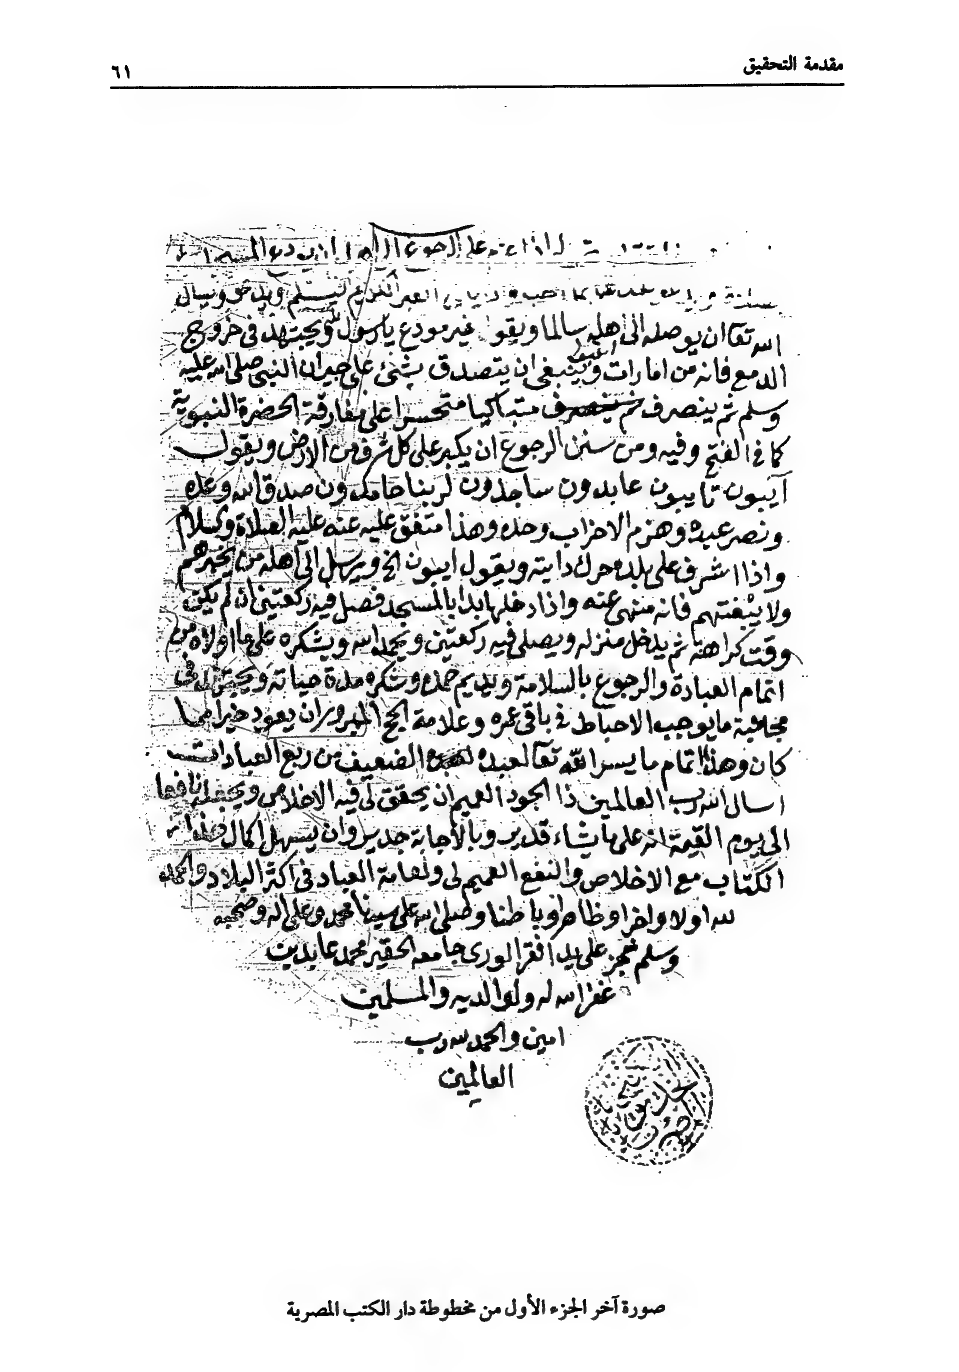 مقدمة التحقيق
٦١
على الرجوع
الله تعالى ان يوصله الى اهله سالما ويقول غير مودع يا رسول الله ويجتهد فى خروج
الدمع فانه من امارات القبول وينبغى ان يتصدق بشئ على جيران النبى صلى الله عليه
وسلم ثم ينصرف متباكيا متحسرا على مفارقة الحضرة النبوية
كما فى الفتح وفيه ومن سنن الرجوع ان يكبر على كل شرف من الارض ويقول
آيبون تايبون عابدون ساجدون لربنا حامدون صدق الله وعده
ونصر عبده وهزم الاحزاب وحده وهذا متفق عليه عنه عليه الصلاة والسلام
واذا اشرف على بلده حرك دابته ويقول ايبون الخ ويرسل الى اهله من يخبرهم
ولا يبغتهم فانه منهى عنه واذا دخلها بدا بالمسجد فصلى فيه ركعتين ان لم يكن
وقت كراهة ثم يدخل منزله ويصلى فيه ركعتين ويحمد الله ويشكره على ما اولاه من
اتمام العبادة والرجوع بالسلامة ويديم حمده وشكره مدة حياته ويجتهد فى
مجانبة ما يوجب الاحباط فى باقى عمره وعلامة الحج المبرور ان يعود خيرا مما
كان وهذا اتمام ما يسر الله تعالى لعبده الضعيف من ربع العبادات
اسال الله رب العالمين ذا الجود العميم ان يحقق لى فيه الاخلاص ويجعله نافعا
الى يوم القيمة انه على ما يشاء قدير وبالاجابة جدير وان يسهل اكمال
الكتاب مع الاخلاص والنفع العميم لى ولعامة العباد فى اكثر البلاد والحمد
لله اولا واخرا وظاهرا وباطنا وصلى الله على سيدنا محمد وعلى اله وصحبه
وسلم نجز على يد افقر الورى جامعه الحقير محمد عابدين
غفر الله له ولوالديه والمسلمين
امين والحمد لله رب
العالمين
صورة آخر الجزء الأول من مخطوطة دار الكتب المصرية